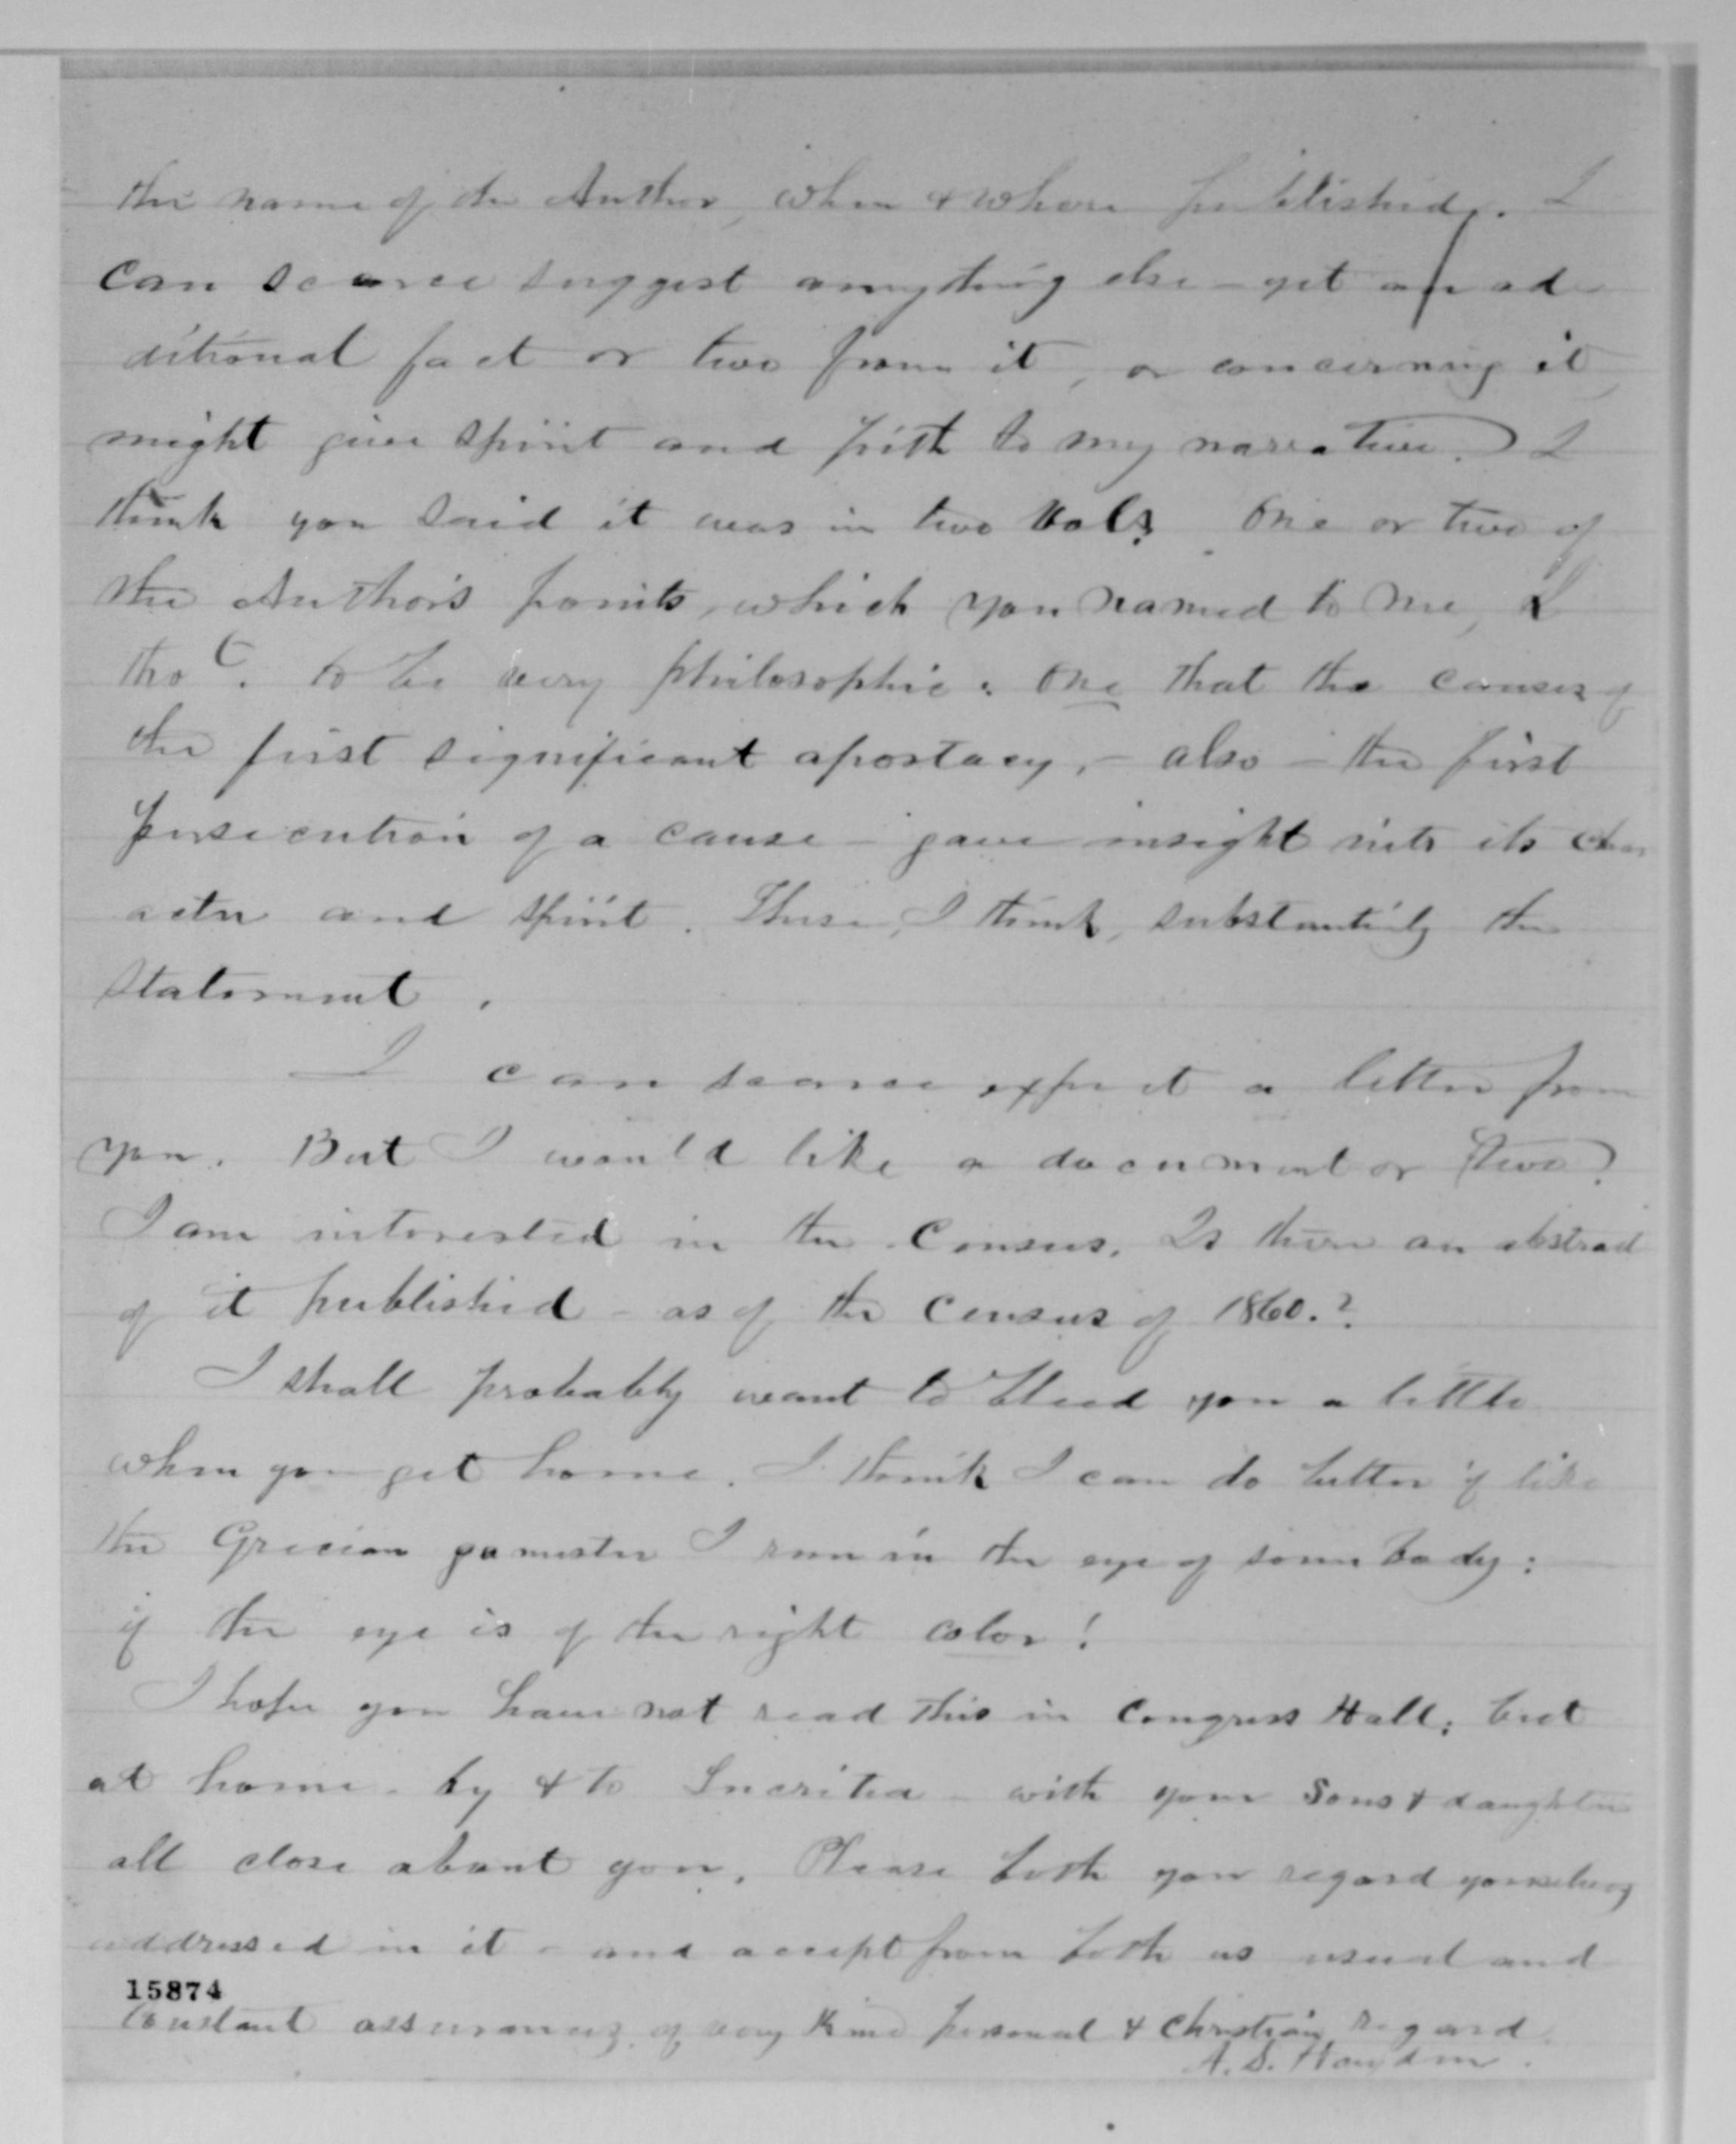 the name of the Author, when & where published. I
can scarce suggest anything else - yet an ad-
ditional fact or two from it, or concerning it,
might give spirit and pith to my narrative.) I
think you said it was in two Vols. One or two of
the Author's points, which you named to me, I
thot. to be very philosophic: One that the causes of
the first significant apostacy, - also - the first
persecution of a cause - gave insight into its char
acter and spirit. These, I think, substantially the
statement.
I can scarce expect a letter from
you. But I would like a document or two?
I am interested in the Census. Is there an abstract
of it published - as of the Census of 1860.?
I shall probably want to bleed you a little
when you get home. I think I can do better if like
the Grecian gamester I run in the eye of some body:
if the eye is of the right color!
I hope you have not read this in Congress Hall; but
at home - by & to Lucretia - with your Sons & daughter
all close about you. Please both you regard yourselves
addressed in it - and accept from both us usual and
15874
Constant assurances of very kind personal & Christian regard.
A. S. Hayden.